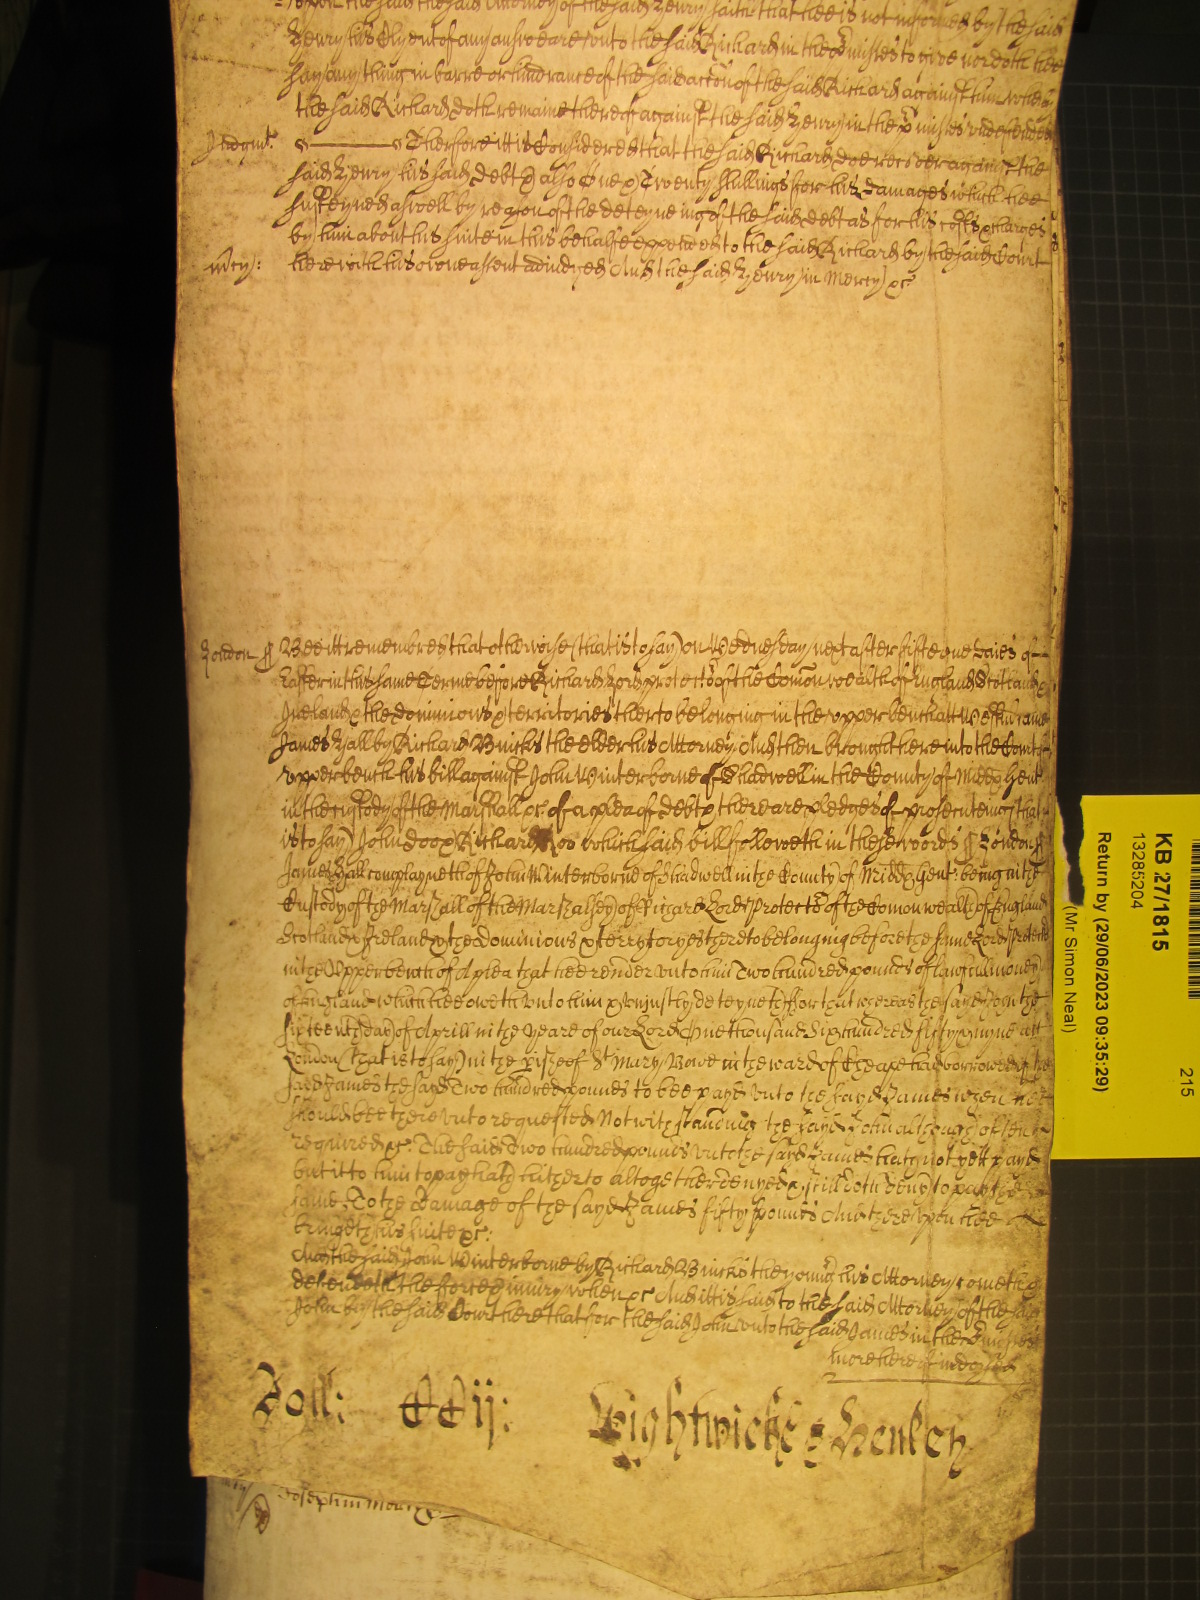 upon the said the said Attorney of the said Henry saith that hee is not informed by the said
Henry his Clyent of any answeare unto the said Richard in the p̱misses to give nor doth hee
say any thing in barre or hindrance of the said accõn of the said Richard against him whereby
the said Richard doth remaine thereof against the said Henry in the p̱misses undefended
Judgmt: Therfore itt is Considered that the said Richard doe recover against the
said Henry his said debt & also One & Twenty shillings for his damages which hee
susteyned aswell by reason of the deteyneing of the said debt as for his costs & charges
by him about his suite in this behalfe expended to the said Richard by the said Court
mcy: here with his owne assent adiudged And the said Henry in Mercy &c
London ss Bee itt remembred that otherwise (that is to say) on Wednesday next after fifteene daies of
Easter in this same Terme before Richard Lord protector of the Comon wealth of England Scotland &
Ireland & the dominions & territories therto belonging in the upper bench att Westm̃ came
James Hall by Richard Bincks the elder his Attorney And then brought here into the Court of
upper bench his bill against John Winterborne of Shadwell in the County of Midd Gent
in the custody of the Marshall &c of a plea of debt & there are pledges of prosecuteing (that
is to say) John Doo & Richard Roo which said bill followeth in these words ss London ss
James Hall complayneth of John Winterborne of Shadwell in the County of Midd Gent: being in the
Custody of the Marshall of the Marshalsey of Richard Lord Protector of the Comonwealth of England
Scotland & Ireland & the Dominions & terrytoryes thereto belonging before the same Lord Protector
in the Upper bench of A plea that hee render unto him Two hundred pounds of lawfull money
of England which hee oweth unto him & Uniustly deteyneth For that whereas the sayd John the
sixteenth day of Aprill in the yeare of our Lord One thousand Six hundred fifty & nyne att
London (that is to say) in the p̱ish of St Mary Bowe in the ward of Cheape had borrowed of the
sayd James the sayd Two hundred pounds to bee payd unto the sayd James when hee
should bee thereunto requested Notwithstanding the sayd John although often
required &c: The said Two hundred pounds unto the sayd James hath not yett payd
but itt to him to pay hath hitherto altogether denyed & still doth deny to pay the
same. To the Damage of the sayd James fifty pounds And thereupon hee
bringeth his suite &c:
And the said John Winterborne by Richard Bincks the yonḡ his Attorney cometh &
defendeth the force & iniury when &c And itt is said to the said Attorney of the said
John by the said Court here that for the said John unto the said James in the p̱misses
more hereof indorsed
Roll: CCij: Wightwicke & Henley
Joseph in Mercy &c
KB 27/1815
13285204
215
Return by (29/06/2023 09:35:29)
(Mr Simon Neal)